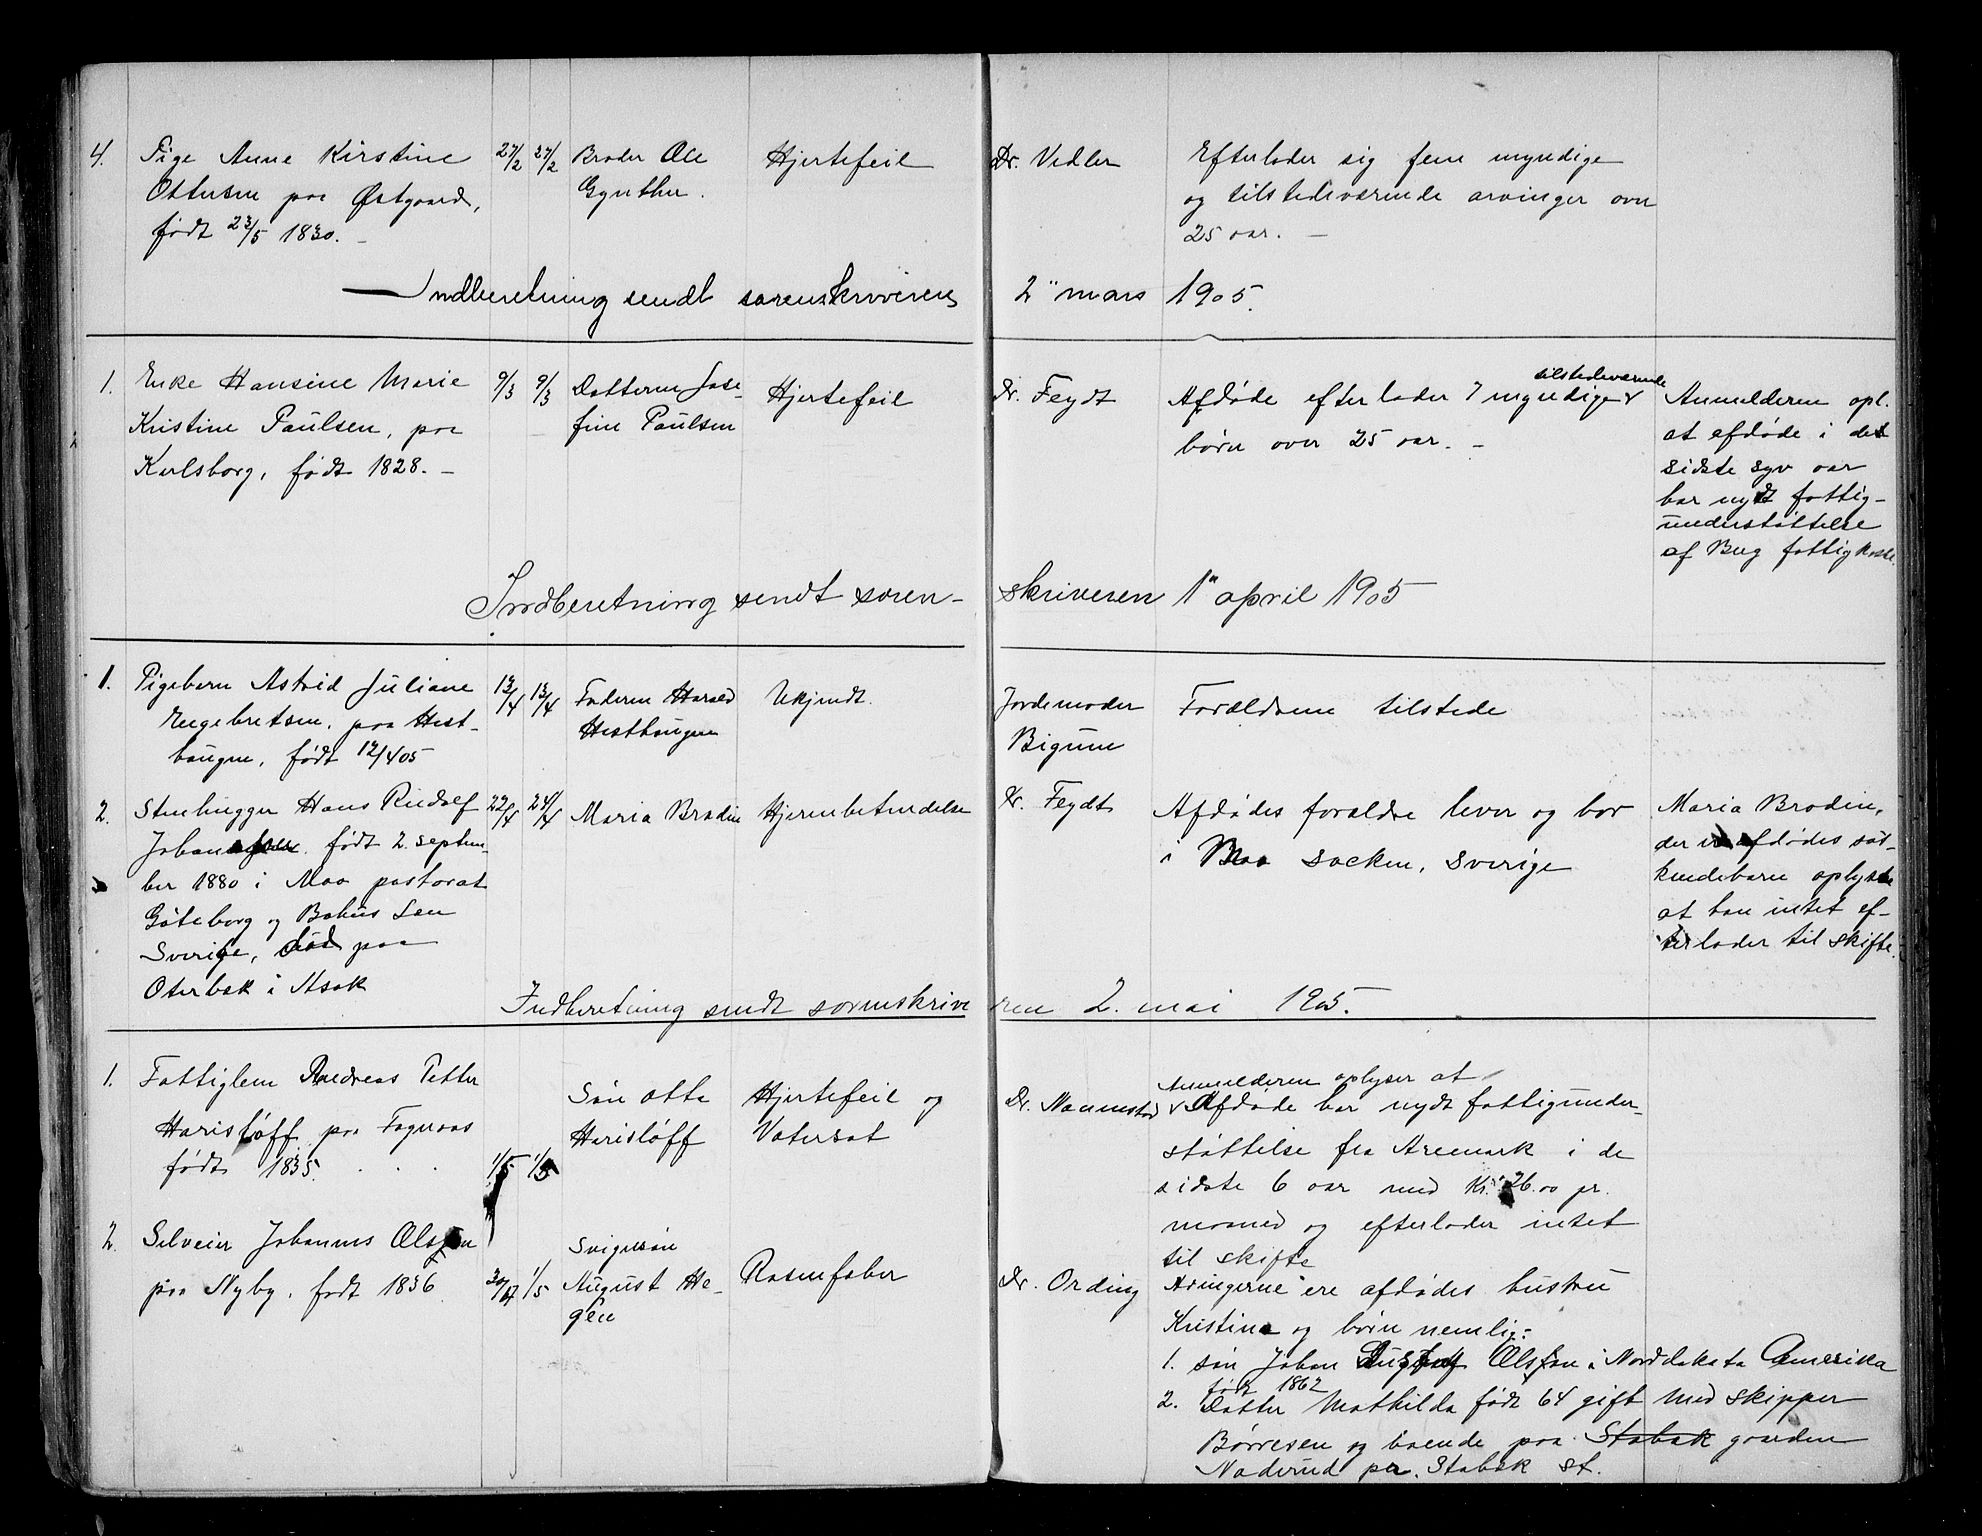 4. Pige Anne Kirstine 27/2 27/2 Broder Ole Hjertefeil Dr. Vedler Efterlader sig fem myndige
Ottersen paa Østgaard, Gynther. og tilstedeværende arvinger over
født 23/5 1830. – 25 aar. –
Indberetning sendt sorenskriveren 2" mars 1905.
1. Enke Hansine Marie 9/3 9/3 Datteren Jose- Hjertefeil Dr. Feydt Afdøde efterlader 7 myndige tilstedeværende Anmelderen opl.
Kristine Paulsen, paa fine Paulsen børn over 25 aar. – at afdøde i det
Kulsborg, født 1828. – sidste syv aar
har nydt fattig-
understøttelse
af Berg fattigkasse.
Indberetning sendt soren- skriveren 1" april 1905
1. Pigebarn Astrid Juliane 13/4 13/4 Faderen Harald Ukjendt. Jordemoder Forældrene tilstede
Engebretsen, paa Hest- Hesthaugen Bigum
haugen, født 12/4 05
2. Stenhugger Hans Rudolf 22/4 24/4 Maria Brodin Hjernebetændelse Dr. Feydt Afdødes forældre lever og bor Maria Brodin,
Johansson, født 2 septem- i Moo socken, Sverige der er afdødes søs-
ber 1880 i Moo pastorat kendebarn oplyste
Göteborg og Bohus Len at han intet ef-
Sverige, død paa terlader til skifte.
Oterbæk i Asak
Indberetning sendt sorenskrive ren 2. mai 1905.
1. Fattiglem Andreas Petter Søn Otto Hjertefeil og Dr. Naumstad Anmelderen oplyser at
Harisløff paa Fagernaas 1/5 1/5 Harisløff Vatersot Afdøde har nydt fattigunder-
født 1835. støttelse fra Aremark i de
sidste 6 aar med Kr. 26.00 pr.
maaned og efterlader intet
til skifte
2. Selveier Johannes Olsson 30/4 1/5 Svigersøn Rosenfeber Dr. Ording Arvingerne ere afdødes hustru
paa Nyby, født 1836 August He- Kristine og børn nemlig:
gen
1. søn Johan Gustaf Olsson i Norddakota Amerika
født 1862
2. Datter Mathilda født 64 gift med skipper
Børresen og boende paa Stabæk gaarden
Naderud pr. Stabæk st.